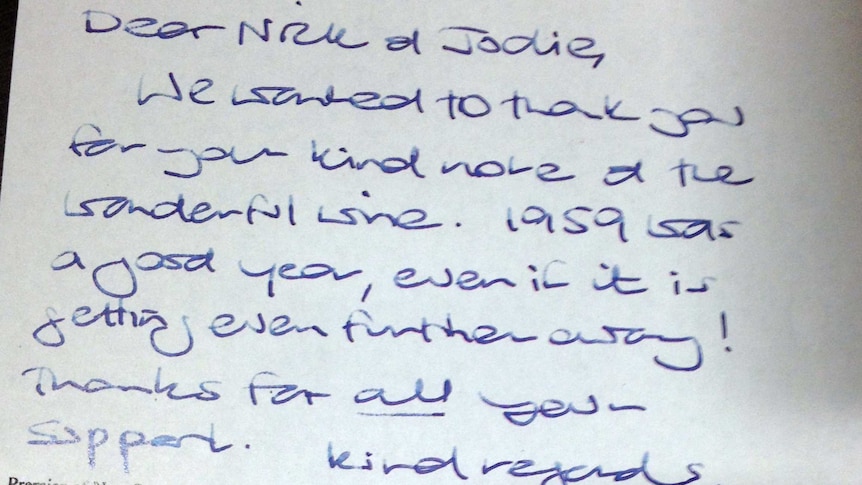 Dear Nick & Jodie,
We wanted to thank you
for your kind note & the
wonderful wine. 1959 was
a good year, even if it is
getting even further away!
Thanks for all your
support.
kind regards